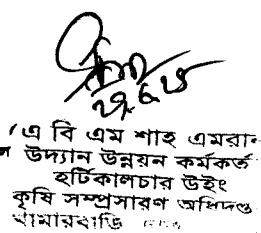 এ বি এম শাহ এমরান
উদ্যান উন্নয়ন কর্মকর্ত
হর্টিকালচার উইং
কৃষি সম্প্রসারণ অধিদপ্ত
খামারবাড়ি